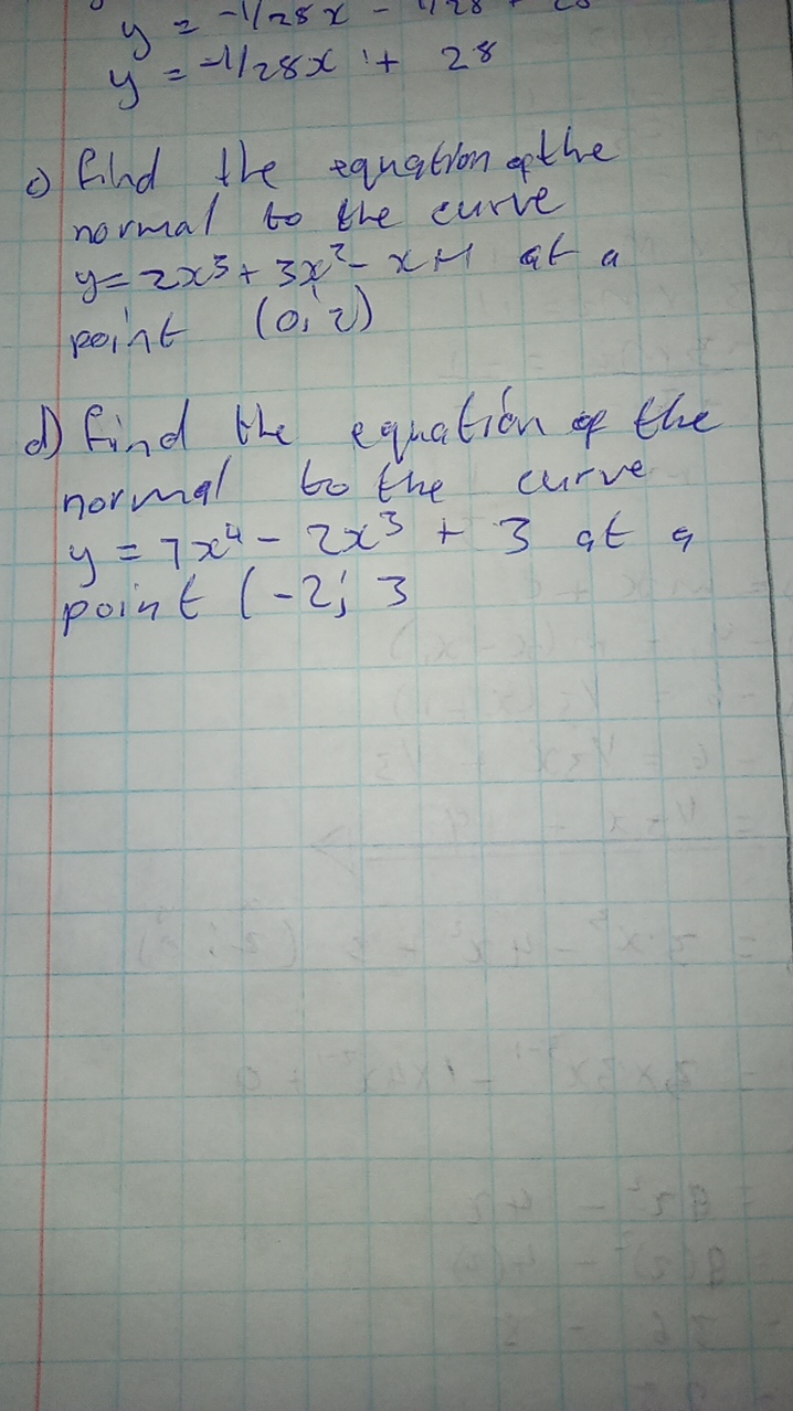 y = -1/28x -
y = -1/28x + 28
c) find the equation of the
normal to the curve
y = 2x³ + 3x² - x + 1 at a
point (0; 2)
d) find the equation of the
normal to the curve
y = 7x⁴ - 2x³ + 3 at a
point (-2; 3